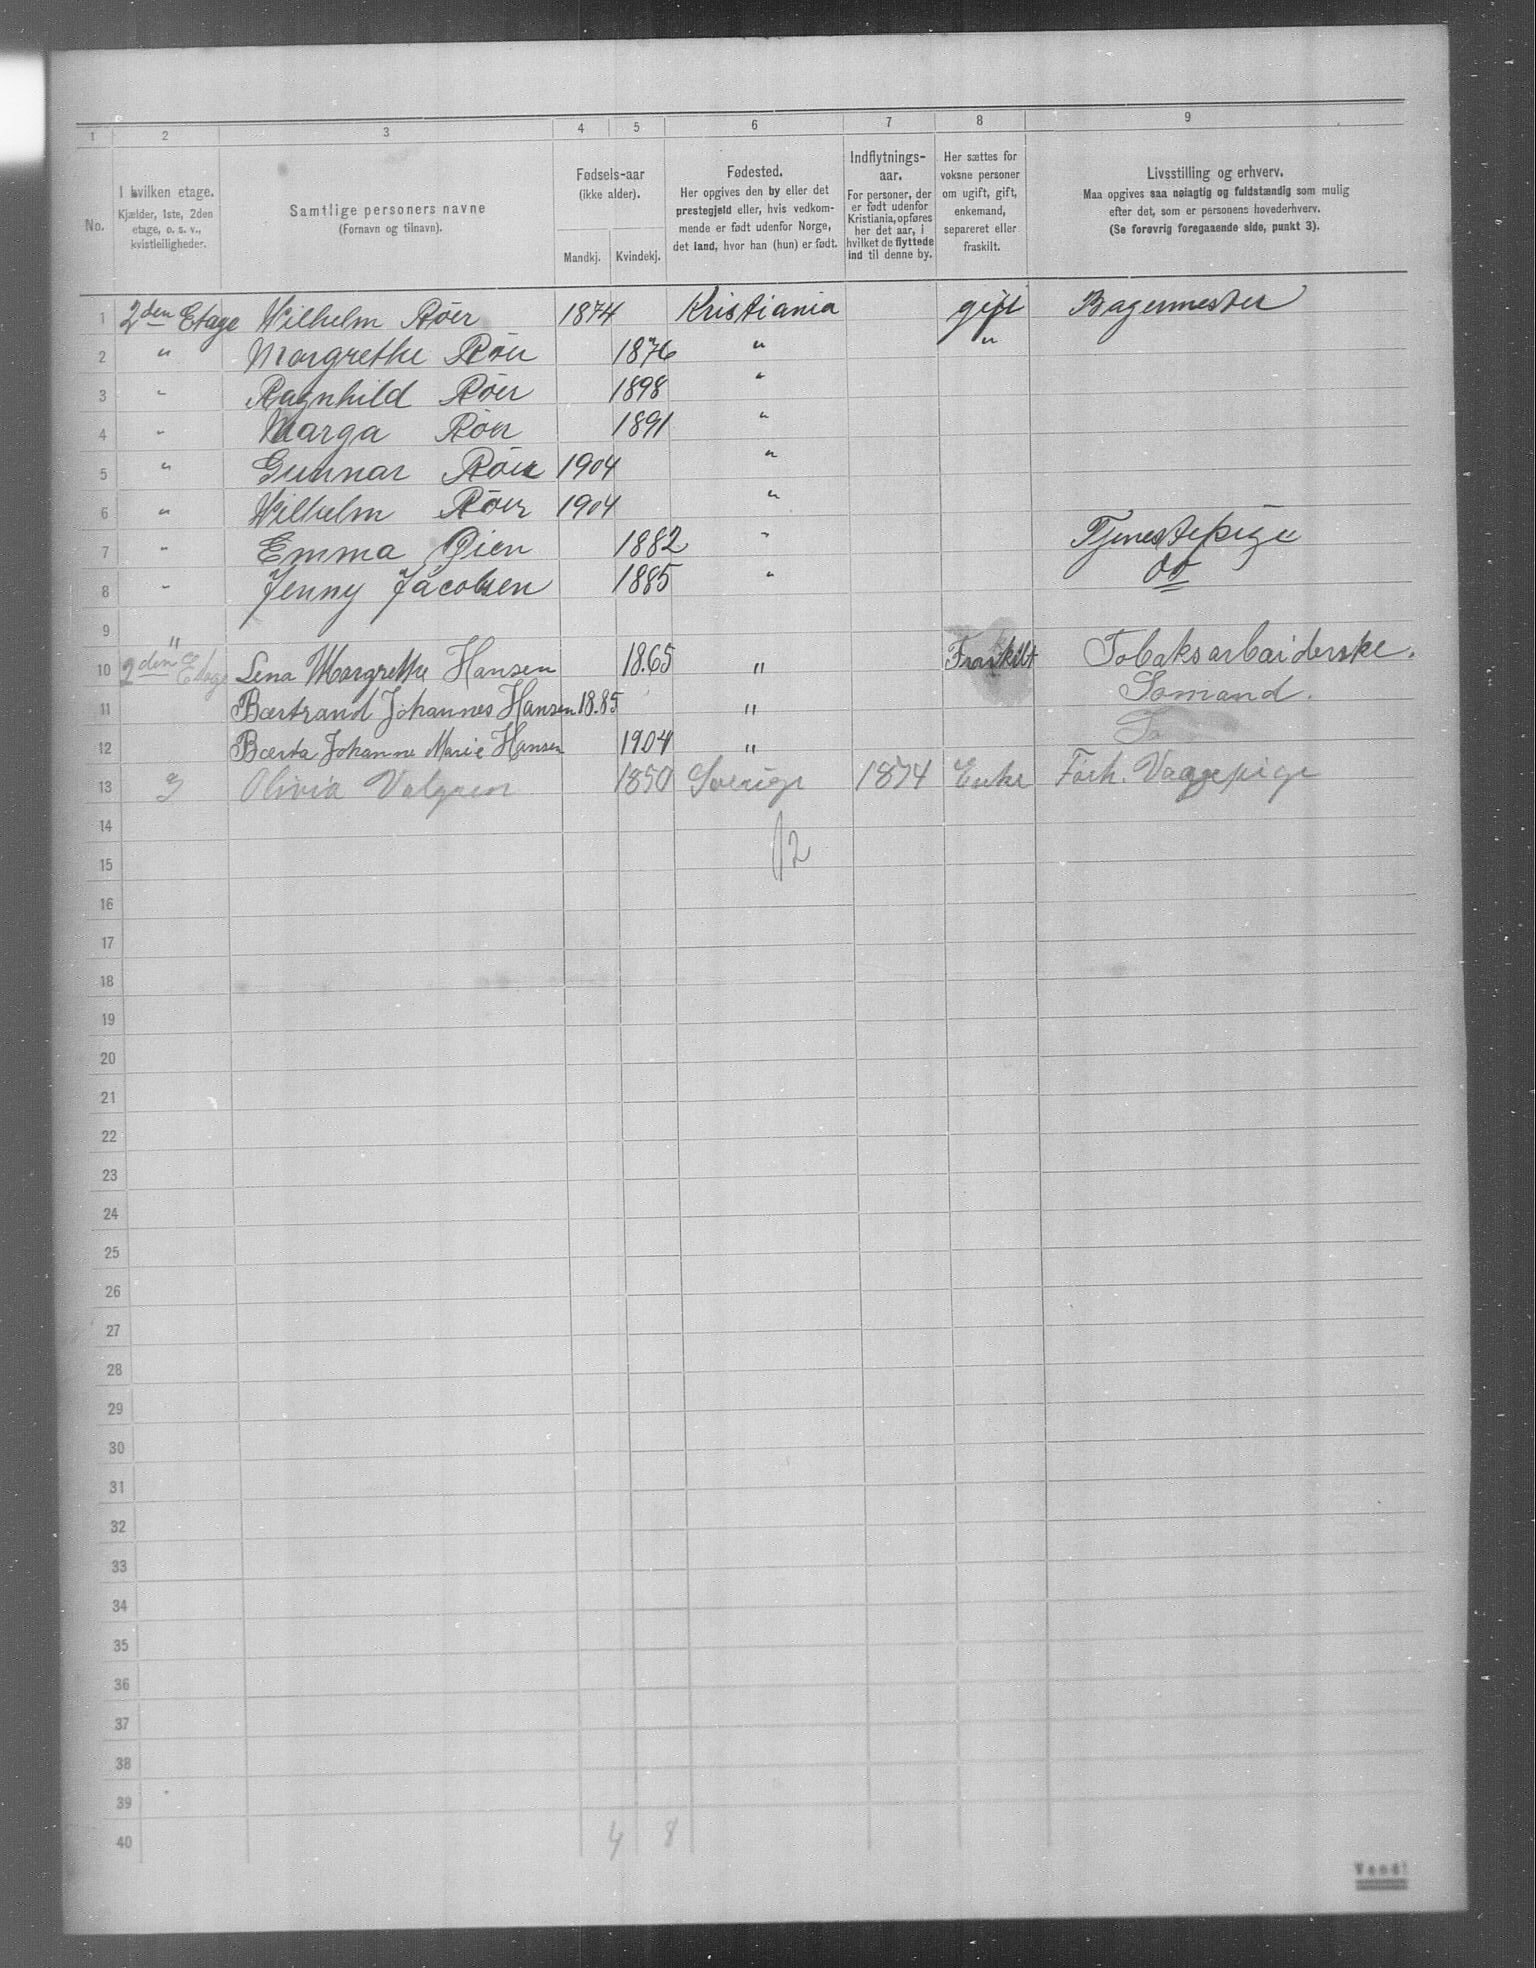 1 2 3 4 5 6 7 8 9
No.
I hvilken etage.
Kjælder, 1ste, 2den
etage, o. s. v.,
kvistleiligheder.
Samtlige personers navne
(Fornavn og tilnavn).
Fødsels-aar
(ikke alder).
Mandkj. Kvindekj.
Fødested.
Her opgives den by eller det
prestegjeld eller, hvis vedkom-
mende er født udenfor Norge,
det land, hvor han (hun) er født.
Indflytnings-
aar.
For personer, der
er født udenfor
Kristiania, opføres
her det aar, i
hvilket de flyttede
ind til denne by.
Her sættes for
voksne personer
om ugift, gift,
enkemand,
separeret eller
fraskilt.
Livsstilling og erhverv.
Maa opgives saa nøiagtig og fuldstændig som mulig
efter det, som er personens hovederhverv.
(Se forøvrig foregaaende side, punkt 3).
1 2den Etage Wilhelm Röer 1874 Kristiania gift Bagermester
2 " Margrethe Röer 1876 " "
3 " Ragnhild Röer 1898 "
4 " Marga Röer 1891 "
5 " Gunnar Röer 1904 "
6 " Wilhelm Röer 1904 "
7 " Emma Øien 1882 " Tjenestepige
8 " Jenny Jacobsen 1885 " do
9 "
10 2den Etage Lena Margrethe Hansen 18.65 " Fraskilt Tobaksarbæiderske.
11 Bærtrand Johannes Hansen 18.85 " Sømand.
12 Bærta Johanne Marie Hansen 1904 "
13 3 Olivia Valgren 1850 Sverige 1874 Enke Forh. Vaagepige
14
12
15
16
17
18
19
20
21
22
23
24
25
26
27
28
29
30
31
32
33
34
35
36
37
38
39
40 4 8
Vend!